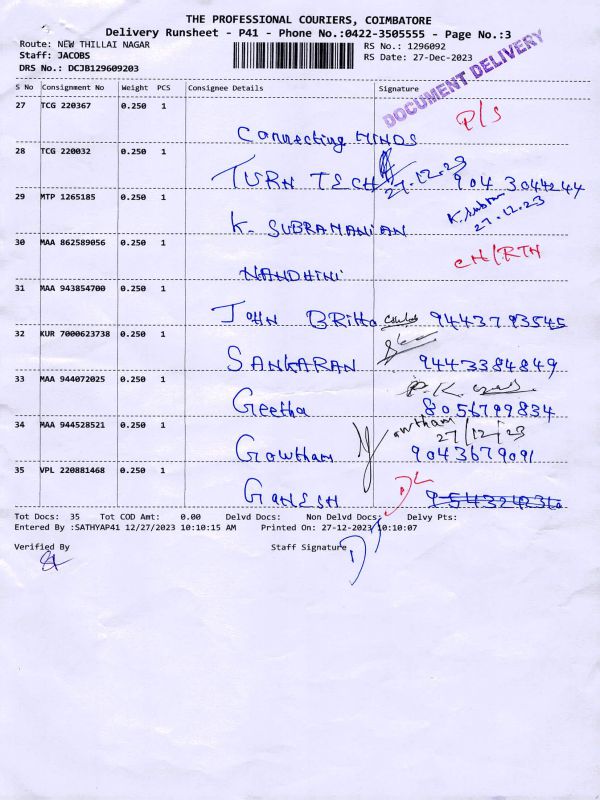 THE PROFESSIONAL COURIERS, COIMBATORE
Delivery Runsheet - P41 - Phone No.:0422-3505555 - Page No.:3
Route: NEW THILLAI NAGAR
RS No.: 1296092
Staff: JACOBS
RS Date: 27-Dec-2023
DRS No.: DCJB129609203
DOCUMENT DELIVERY
S No Consignment No Weight PCS Consignee Details Signature
27 TCG 220367 0.250 1
P/S
Connecting MINDS
28 TCG 220032 0.250 1
TURN TECH 27.12.23 904 3044244
29 MTP 1265185 0.250 1
27.12.23
K. SUBRAMANIAN
30 MAA 862589056 0.250 1
CH/RTN
NANDHINI
31 MAA 943854700 0.250 1
JOHN BRitto 94437 93545
32 KUR 7000623738 0.250 1
SANKARAN 9443384849
33 MAA 944072025 0.250 1
Geetha 8056799834
34 MAA 944528521 0.250 1
Gowtham
27/12/23
Gowtham 9043679091
35 VPL 220881468 0.250 1
GANESH
Tot Docs: 35 Tot COD Amt: 0.00 Delvd Docs: Non Delvd Docs: Delvy Pts:
Entered By :SATHYAP41 12/27/2023 10:10:15 AM Printed On: 27-12-2023 10:10:07
Verified By Staff Signature